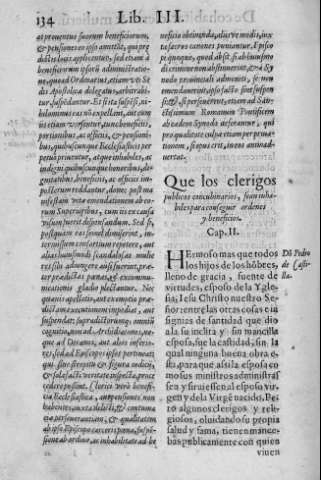 134 Lib. III.
ac prouentus suorum beneficiorum,
& pensiones eo ipso amittāt, qui præ
dictis locis applicentur, sed etiam à
beneficiorum ipsorū administratio-
ne, quoad Ordinarius, etiam vti Se
dis Apostolicæ delegatus, arbitrabi-
tur, suspēdantur. Et si ita suspēsi, ni-
hilominus eas nō expellant, aut cum
eis etiam versentur, tunc beneficijs,
portionibus, ac officijs, & pensioni-
bus, quibuscunque Ecclesiasticis per
petuò priuentur, atque inhabiles, ac
indigni quibuscunque honoribus, di-
gnitatibus, beneficijs, ac officijs im
posterum reddantur, donec post ma
nifestam vitæ emendationem ab eo-
rum Superioribus, cum iis ex causa
visum fuerit dispensandum. Sed si,
postquam eas semel dimiserint, in-
termissum consortium repetere, aut
alias huiusmodi scandalosas mulie
res sibi adiungere ausi fuerint, præ-
ter prædictas pœnas, excommuni-
cationis gladio plectantur. Nec
quæuis appellatio, aut exemptio præ
dictam executionem impediat, aut
suspendat: supradictorumq; omniū
cognitio, non ad Archidiaconos, ne-
que ad Decanos, aut alios inferio-
res, sed ad Episcopos ipsos pertineat:
qui sine strepitu & figura iudicij,
& sola facti veritate inspecta, proce
cedere possint. Clerici verò benefi-
cia Ecclesiastica, aut pensiones non
habentes, iuxta delicti, & contuma
ciæ perseuerantiam, & qualitatem
ab ipso Episcopo carceris pœna, suspen
sione ab ordine, ac inhabilitate ad be
neficia obtinenda, aliisve modis, iux
ta sacros canones puniantur. Episco
pi quoque, quod absit, si ab huiusmo
di crimine non abstinuerint, & à Sy-
nodo prouinciali admoniti, se non
emendauerint, ipso facto sint suspen
si: & si perseuerent, etiam ad San-
ctissimum Romanum Pontificem
ab eadem Synodo deferantur, qui
pro qualitate culpæ etiam per priua-
tionem, si opus erit, in eos animad-
uertat.
Que los clerigos
publicos concubinarios, sean inha-
biles para conseguir ordenes
y beneficios.
Cap. II.
HErmoso mas que todos
los hijos de los hōbres,
lleno de gracia, fuente de
virtudes, esposo de la Ygle-
sia, Iesu Christo nuestro Se-
ñor: entre las otras cosas e in
signias de santidad que dio
a la su inclita y sin manzilla
esposa, fue la castidad, sin la
qual ninguna buena obra e-
sta. para que assi la esposa co
mo sus ministros administras
sen y siruiessen al esposo vir-
gen y de la Virgē nacido. Pe-
ro algunos clerigos y reli-
giosos, oluidando su propia
salud y fama, tienen mance-
bas publicamente con quien
viuen
Dō Pedro
de Casti-
lla.